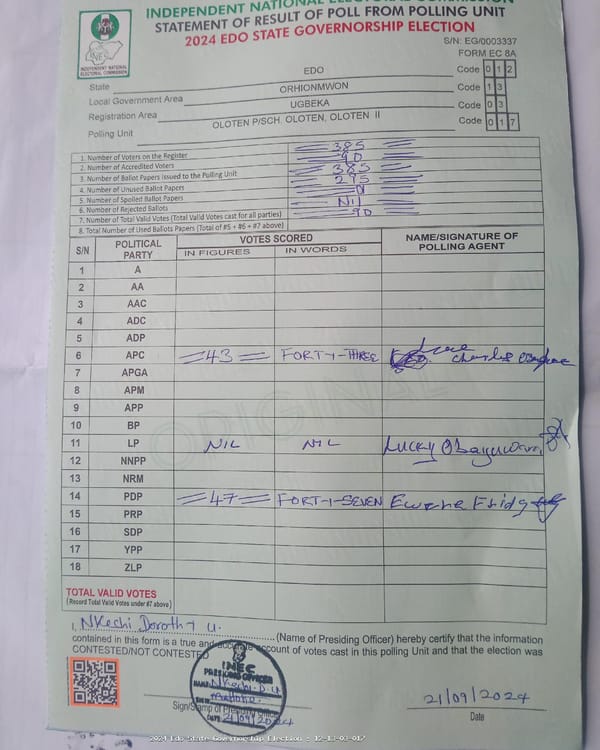 INDEPENDENT NATIONAL ELECTORAL COMMISSION
STATEMENT OF RESULT OF POLL FROM POLLING UNIT
2024 EDO STATE GOVERNORSHIP ELECTION
INEC
INDEPENDENT NATIONAL ELECTORAL COMMISSION
S/N: EG/0003337
FORM EC 8A
State EDO Code 0 1 2
Local Government Area ORHIONMWON Code 1 3
Registration Area UGBEKA Code 0 3
Polling Unit OLOTEN P/SCH. OLOTEN, OLOTEN II Code 0 1 7
1. Number of Voters on the Register 385
2. Number of Accredited Voters 90
3. Number of Ballot Papers issued to the Polling Unit 385
4. Number of Unused Ballot Papers 295
5. Number of Spoiled Ballot Papers
6. Number of Rejected Ballots Nil
7. Number of Total Valid Votes (Total Valid Votes cast for all parties) 90
8. Total Number of Used Ballots Papers (Total of #5 + #6 + #7 above)
S/N POLITICAL PARTY VOTES SCORED NAME/SIGNATURE OF POLLING AGENT
IN FIGURES IN WORDS
1 A
2 AA
3 AAC
4 ADC
5 ADP
6 APC =43= FORTY-THREE Charles
7 APGA
8 APM
9 APP
10 BP
11 LP NIL NIL Lucky
12 NNPP
13 NRM
14 PDP =47= FORTY-SEVEN
15 PRP
16 SDP
17 YPP
18 ZLP
ORIGINAL
TOTAL VALID VOTES
(Record Total Valid Votes under #7 above)
I, Nkechi Dorothy U. (Name of Presiding Officer) hereby certify that the information
contained in this form is a true and accurate account of votes cast in this polling Unit and that the election was
CONTESTED/NOT CONTESTED
INEC
PRESIDING OFFICER
NAME: Nkechi D. U
DATE: 21/09/2024
Sign/Stamp of Presiding Officer
21/09/2024
Date
2024 Edo State Governorship Election : 12-13-03-017